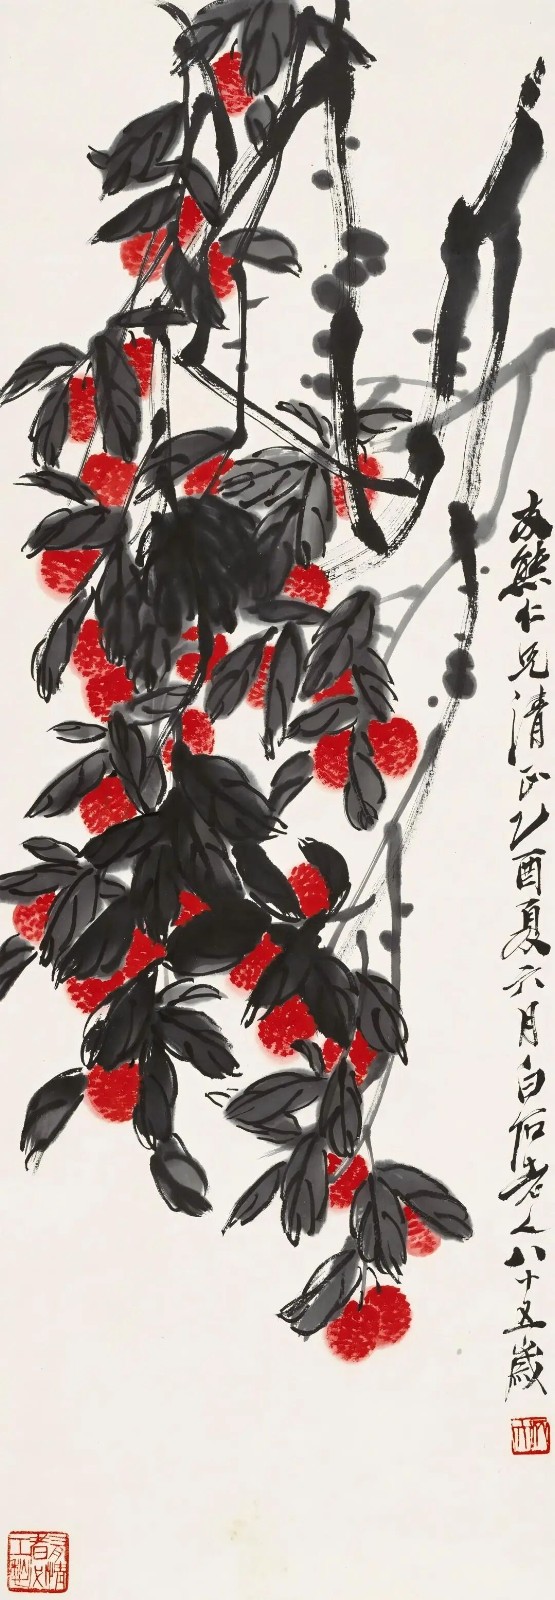 友熊仁兄清正乙酉夏六月白石老人八十五歲